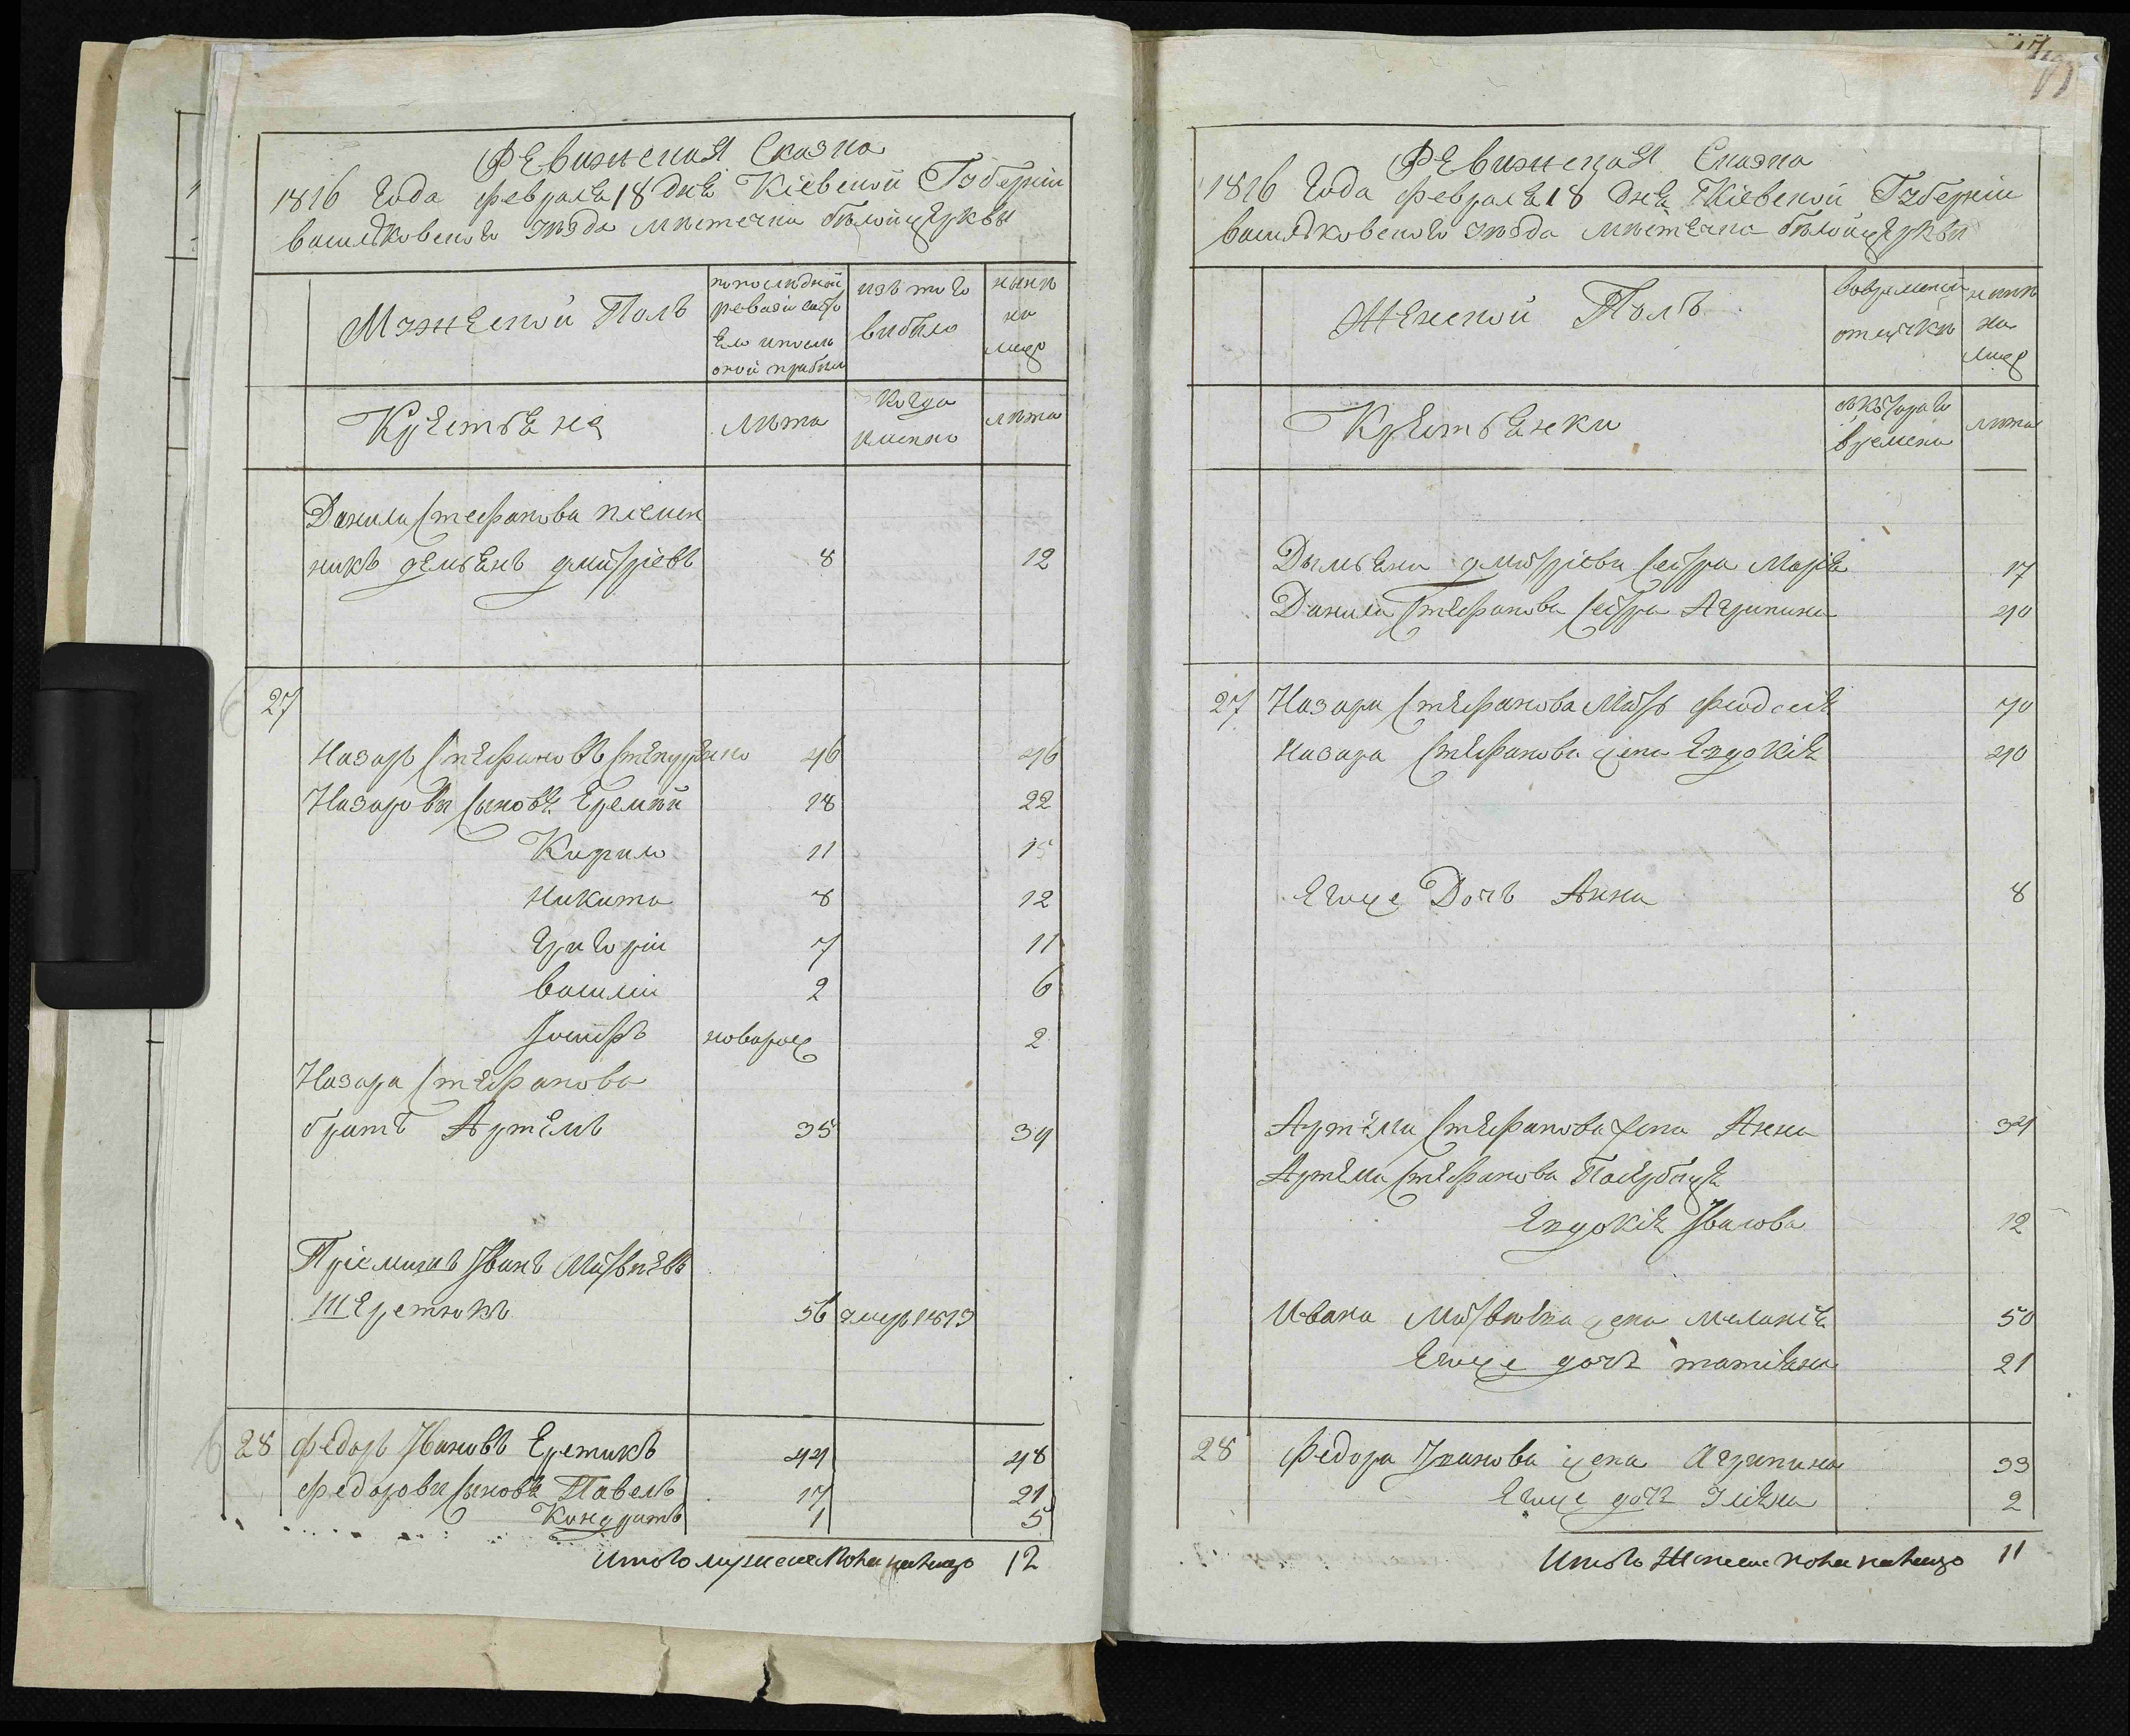 Ревизская Сказка
1816 года февраля 18 дня Кіевской Губерніи
васильковского уезда мѣстечка бѣлойцеркви
Мужеской Полъ
по последной ревизіи состо
яло и после
оной прибыло
изъ того
выбыло
нынѣ
на
лицо
Крестьяне
лѣта
когда
именно
лѣта
Данила Стефанова племен
никъ демьянъ дмитріевъ 8 12
27
Назаръ Стефановъ 46 46
Назаровы сыновя Еремѣй 18 22
Кирило 11 15
Никита 8 12
Григорій 7 11
василій 2 6
Іосифъ новорож 2
Назара Стефанова
братъ Артемъ 35 39
Пріемышъ Іванъ Матвѣевъ
Шеретюкъ 56 умер 1813
28 федоръ Івановъ Еретикъ 44 48
федоровы сыновя Павелъ 17 21
Кондратъ 1 5
Итого мужеска пола налицо 12
Ревизская Сказка
1816 года февраля 18 дня Кіевской Губерніи
васильковского уезда мѣстечка бѣлойцеркви
Женской Полъ
вовременной
отлучкѣ
нынѣ
на
лицо
Крестьянки
съ которого
времени
лѣта
Демьяна дмитріева сестра Марія 17
Данила Стефанова сестра Агрипина 40
27 Назара Стефанова Мать феодосія 70
Назара Стефанова жена Евдокія 40
Егоже Дочь Анна 8
Артема Стефанова жена Анна 34
Артема Стефанова Падчерица
Евдокія Іванова 12
Ивана Матвѣева жена меланія 50
Егоже дочь татіяна 21
28 федора Іванова жена Агрипина 33
Егоже дочь Уліяна 2
Итого Женска пола налицо 11